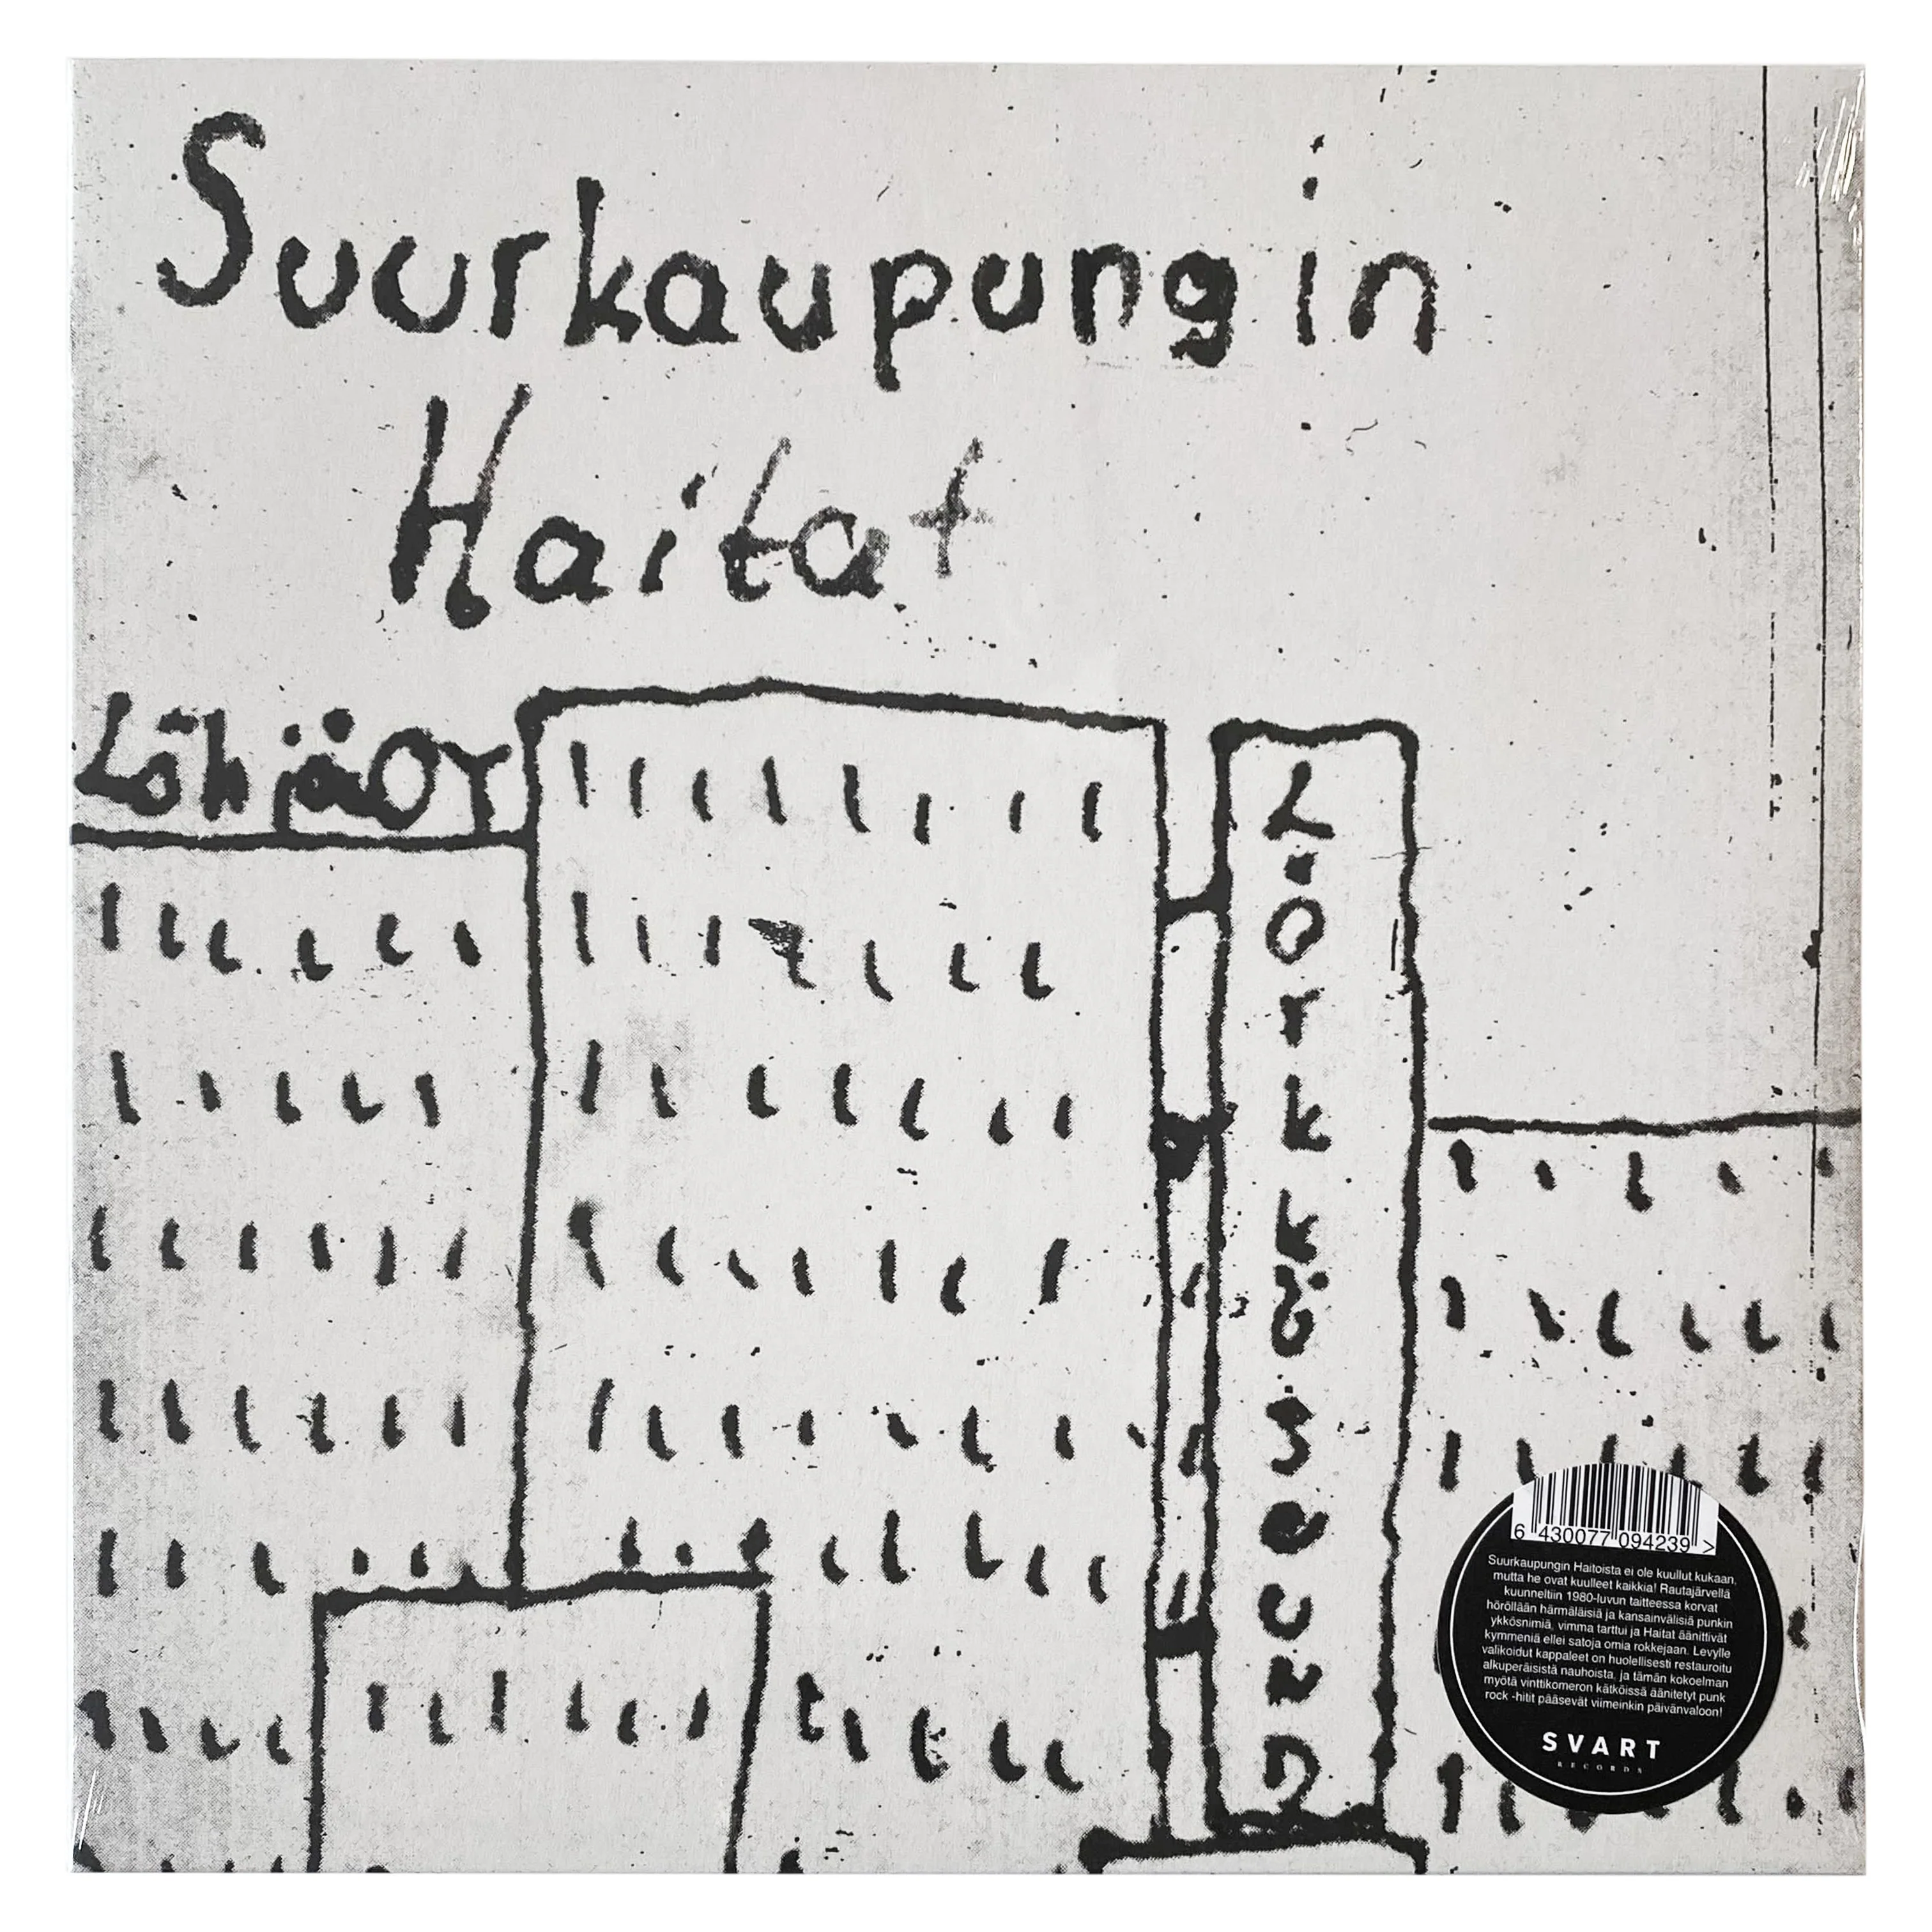 Suurkaupungin
Haitat
6 430077 094239 >
Suurkaupungin Haitoista ei ole kuullut kukaan,
mutta he ovat kuulleet kaikkia! Rautajärvellä
kuunneltiin 1980-luvun taitteessa korvat
höröllään härmäläisiä ja kansainvälisiä punkin
ykkösnimiä, vimma tarttui ja Haitat äänittivät
kymmeniä ellei satoja omia rokkejaan. Levylle
valikoidut kappaleet on huolellisesti restauroitu
alkuperäisistä nauhoista, ja tämän kokoelman
myötä vinttikomeron kätköissä äänitetyt punk
rock -hitit pääsevät viimeinkin päivänvaloon!
SVART
RECORDS